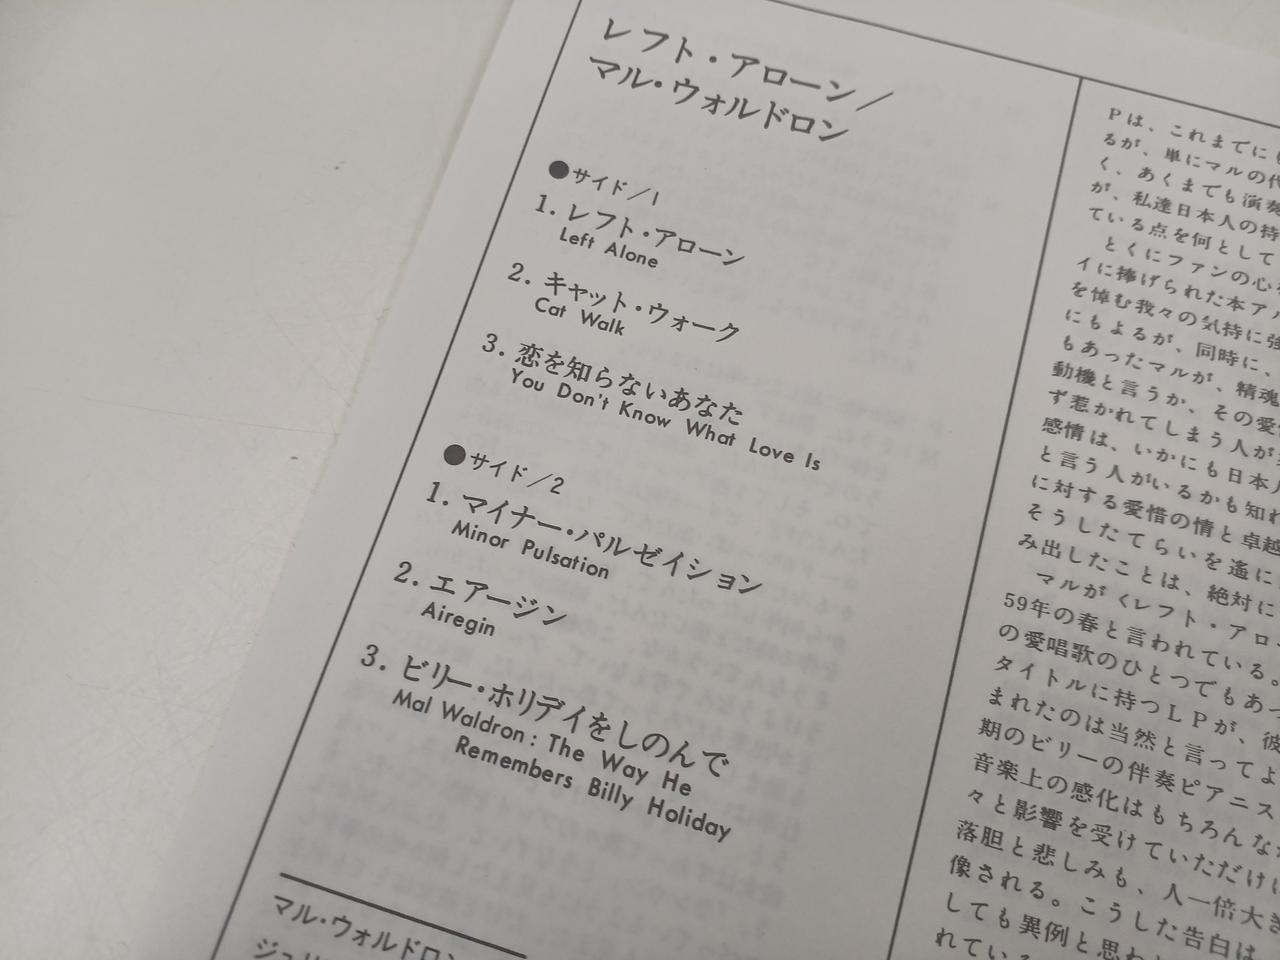 レフト・アローン／
マル・ウォルドロン
●サイド／1
1. レフト・アローン
Left Alone
2. キャット・ウォーク
Cat Walk
3. 恋を知らないあなた
You Don't Know What Love Is
●サイド／2
1. マイナー・パルゼイション
Minor Pulsation
2. エアージン
Airegin
3. ビリー・ホリデイをしのんで
Mal Waldron : The Way He
Remembers Billy Holiday
マル・ウォルドロン
Pは、これまでにも
るが、単にマルの代
く、あくまでも演奏
が、私達日本人の持
ている点を何として
とくにファンの心を
イに捧げられた本アル
を悼む我々の気持に強
にもよるが、同時に、
もあったマルが、精魂
動機と言うか、その愛情
ず惹かれてしまう人が
感情は、いかにも日本人
と言う人がいるかも知れ
に対する愛惜の情と卓越
そうしたてらいを遙に
み出したことは、絶対に
マルが〈レフト・アロー
59年の春と言われている。
の愛唱歌のひとつでもあっ
タイトルに持つＬＰが、彼
まれたのは当然と言ってよ
期のビリーの伴奏ピアニス
音楽上の感化はもちろんな
々と影響を受けていただけに
落胆と悲しみも、人一倍大き
像される。こうした告白は、
しても異例と思わ
れている